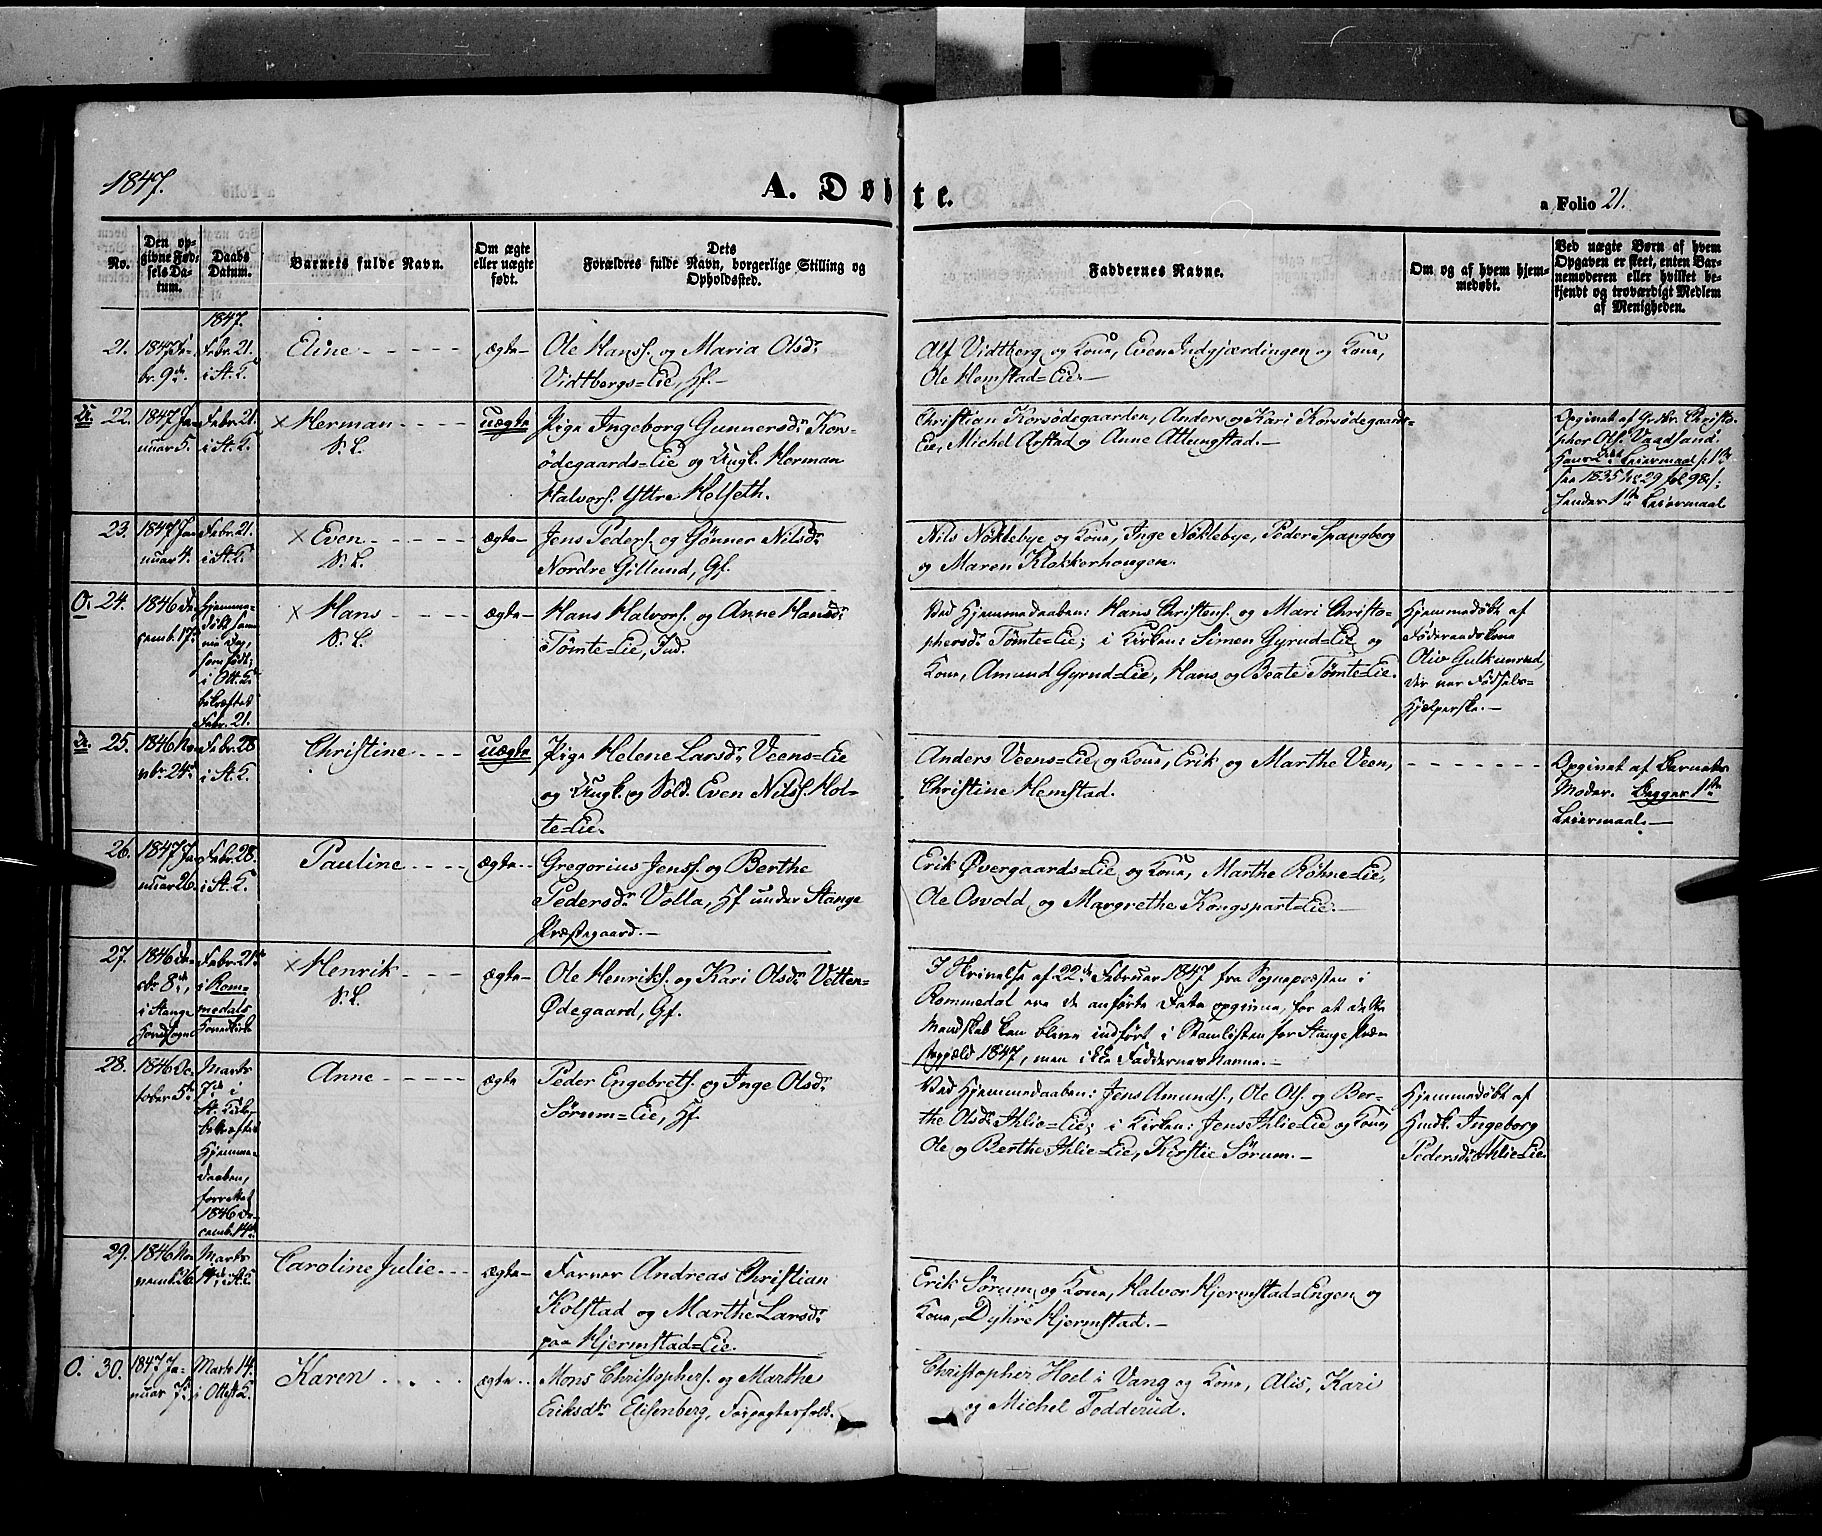 1847.
A. Døbte.
a Folio 21.
No.
Den opgivne Fødsels Datum.
Daabs Datum.
Barnets fulde Navn.
Om ægte eller uægte født.
Dets Forældres fulde Navn, borgerlige Stilling og Opholdssted.
Faddernes Navne.
Om og af hvem hjemmedøbt.
Ved uægte Børn af hvem Opgaven er skeet, enten Barnemoderen eller hvilket bekjendt og troværdigt Medlem af Menigheden.
1847.
21. 1847 Febr. 9de Febr. 21. i St. K. Eline ægte
Ole Hanss. og Maria Olsdr.
Vidtbergs=Eie, Hf.
Alf Vidtberg og Kone, Even Indgjærdingen og Kone,
Ole Hemstad=Eie.
U. 22. 1847 Januar 5. Febr. 21. i St. K. × Herman S. L. uægte
Pige Ingeborg Gunnersdr. Kors-
ødegaards=Eie og Ungk. Herman
Halvors. Yttre Holseth.
Christian Korsødegaarden, Anders og Kari Korsødegaards=
Eie, Michel Arstad og Anne Attungstad.
Opgivet af Gbr. Christo-
pher Ols. Vaadsand.
Hans 2det Leiermaal s. 1ste
see 1835 No 29 fol 98 s.
hendes 1ste Leiermaal
23. 1847 Januar 4. Febr. 21. i St. K. × Even S. L. ægte
Jens Peders. og Gønner Nilsdr.
Nordre Gillund, Gf.
Nils Nøklebye og Kone, Inge Nøklebye, Peder Spangberg
og Maren Klokkerhougen.
O. 24. 1846 Decemb. 17. Hjemmedøbt samme Dag, som født; i Ott. K. bekræftet Febr. 21. × Hans S. L. ægte
Hans Halvors. og Anne Hansdr.
Tømte=Eie, Ind.
Ved Hjemmedaaben: Hans Christens. og Mari Christo-
phersdr. Tømte=Eie; i Kirken: Simen Gyrud=Eie og
Kone, Amund Gyrud=Eie, Hans og Beate Tømte=Eie.
Hjemmedøbt af
Føderaadskone
Oliv Gulkunrud,
der var Fødsels-
Hjelperske.
U. 25. 1846 Novbr. 24. Febr. 28 i St. K. Christine uægte
Pige Helene Larsdr. Veens=Eie
og Ungk. og Sold. Even Nilss. Hol-
te=Eie.
Anders Veens=Eie og Kone, Erik og Marthe Veen,
Christine Hemstad.
Opgivet af Barnets
Moder. Begges 1ste
Leiermaal.
26. 1847 Januar 26. Febr. 28. i St. K. Pauline ægte
Gregorius Jenss. og Berthe
Pedersdr. Volla, Hf under Stange
Præstegaard.
Erik Øvergaards=Eie og Kone, Marthe Røhne=Eie,
Ole Osvold og Margrethe Kongspart=Eie.
27. 1846 Decbr. 8de, i Stange Hovedsogn Febr. 21de i Rommedals Hovedkirke × Henrik S. L. ægte
Ole Henriks. og Kari Olsdr. Vetten-
Ødegaard, Gf.
I Skrivelse af 22de Februar 1847 fra Sognepræsten i
Rommedal ere de anførte Data opgivne, for at dette
Mandskab kan blive indført i Stamlisten for Stange Præ-
stegjæld 1847, men ikke Faddernes Navne.
28. 1846 October 5te Marts 7de i St. Kirke bekræftet Hjemmedaaben, forrettet 1846 Decemb. 14de Anne ægte
Peder Engebrets. og Inge Olsdr.
Sørum=Eie, Hf.
Ved Hjemmedaaben: Jens Amunds., Ole Ols. og Ber-
the Olsdr. Ihlie=Eie; i Kirken: Jens Ihlie=Eie og Kone,
Ole og Berthe Ihlie=Eie, Kirstie Sørum.
Hjemmedøbt af
Hmdk. Ingeborg
Pedersdr. Ihlie=Eie.
29. 1846 Novemb. 26. Marts i St. K. Caroline Julie ægte
Farver Andreas Christian
Kolstad og Marthe Larsdr.
paa Hjermstad=Eie.
Erik Sørum og Kone, Halvor Hjermstad=Engen og
Kone, Dyhre Hjermstad.
O. 30. 1847 Januar 7de Marts 14. i Ottest. K. Karen ægte
Mons Christophers. og Marthe
Eriksdr. Elisenberg, Forpagterfolk.
Christopher Hoel i Vang og Kone, Alis, Kari
og Michel Fodderud.